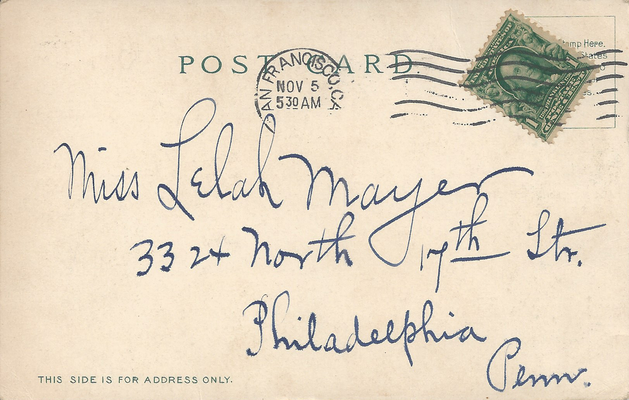 POST CARD
SAN FRANCISCO, CA
NOV 5
530 AM
Stamp Here.
States
Miss Lelah Mayer
3324 North 17th Str.
Philadelphia
Penn.
THIS SIDE IS FOR ADDRESS ONLY.